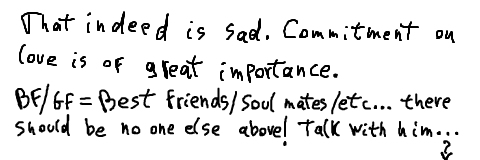 That indeed is sad. Commitment on
love is of great importance.
BF/GF = Best Friends/Soul mates/etc... there
should be no one else above! Talk with him...
?